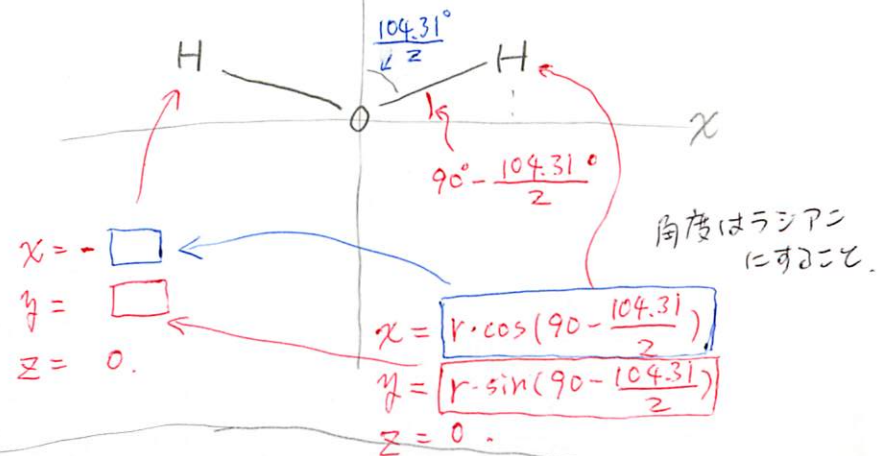 104.31°/2
H
H
O
x
90° - 104.31°/2
角度はラジアン
にすること.
x = -
y =
z = 0.
x = r·cos(90 - 104.31/2)
y = r·sin(90 - 104.31/2)
z = 0.